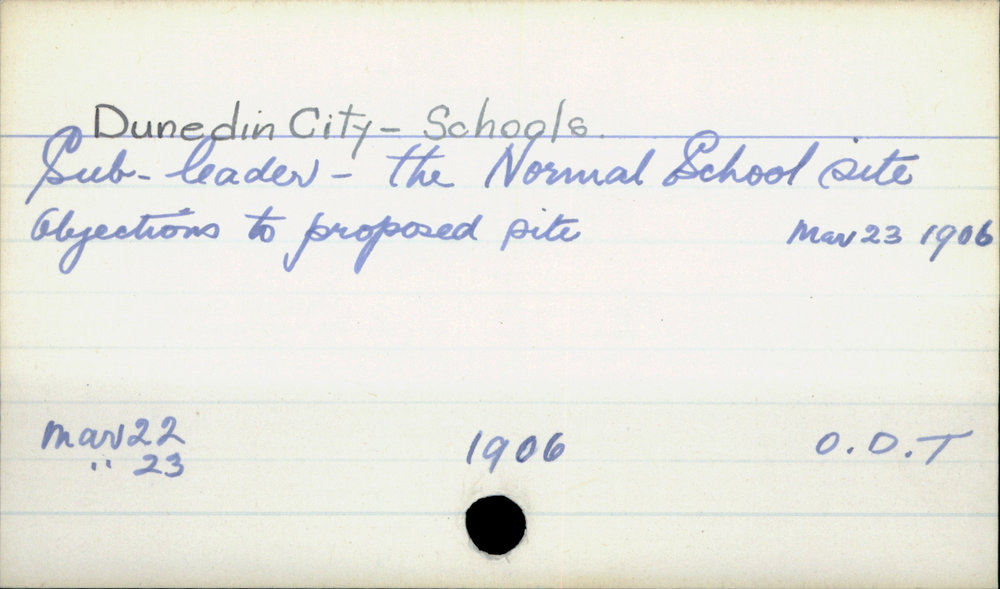 Dunedin City - Schools.
Sub-leader - the Normal School site
Objections to proposed site Mar 23 1906
Mar 22 1906 O.D.T
" 23